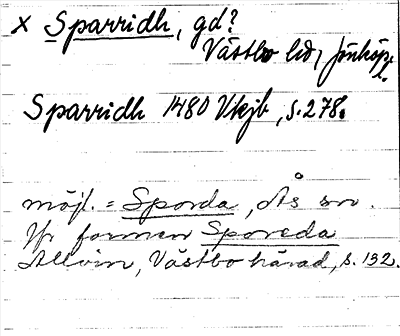 x Sparridh, gd?
Västbo hd, Jönköp.
Sparridh 1480 Vkjb, s. 278.
möjl. = Sporda, Ås sn.
Jfr formen Sporeda
Allvin, Västbo härad, s. 132.